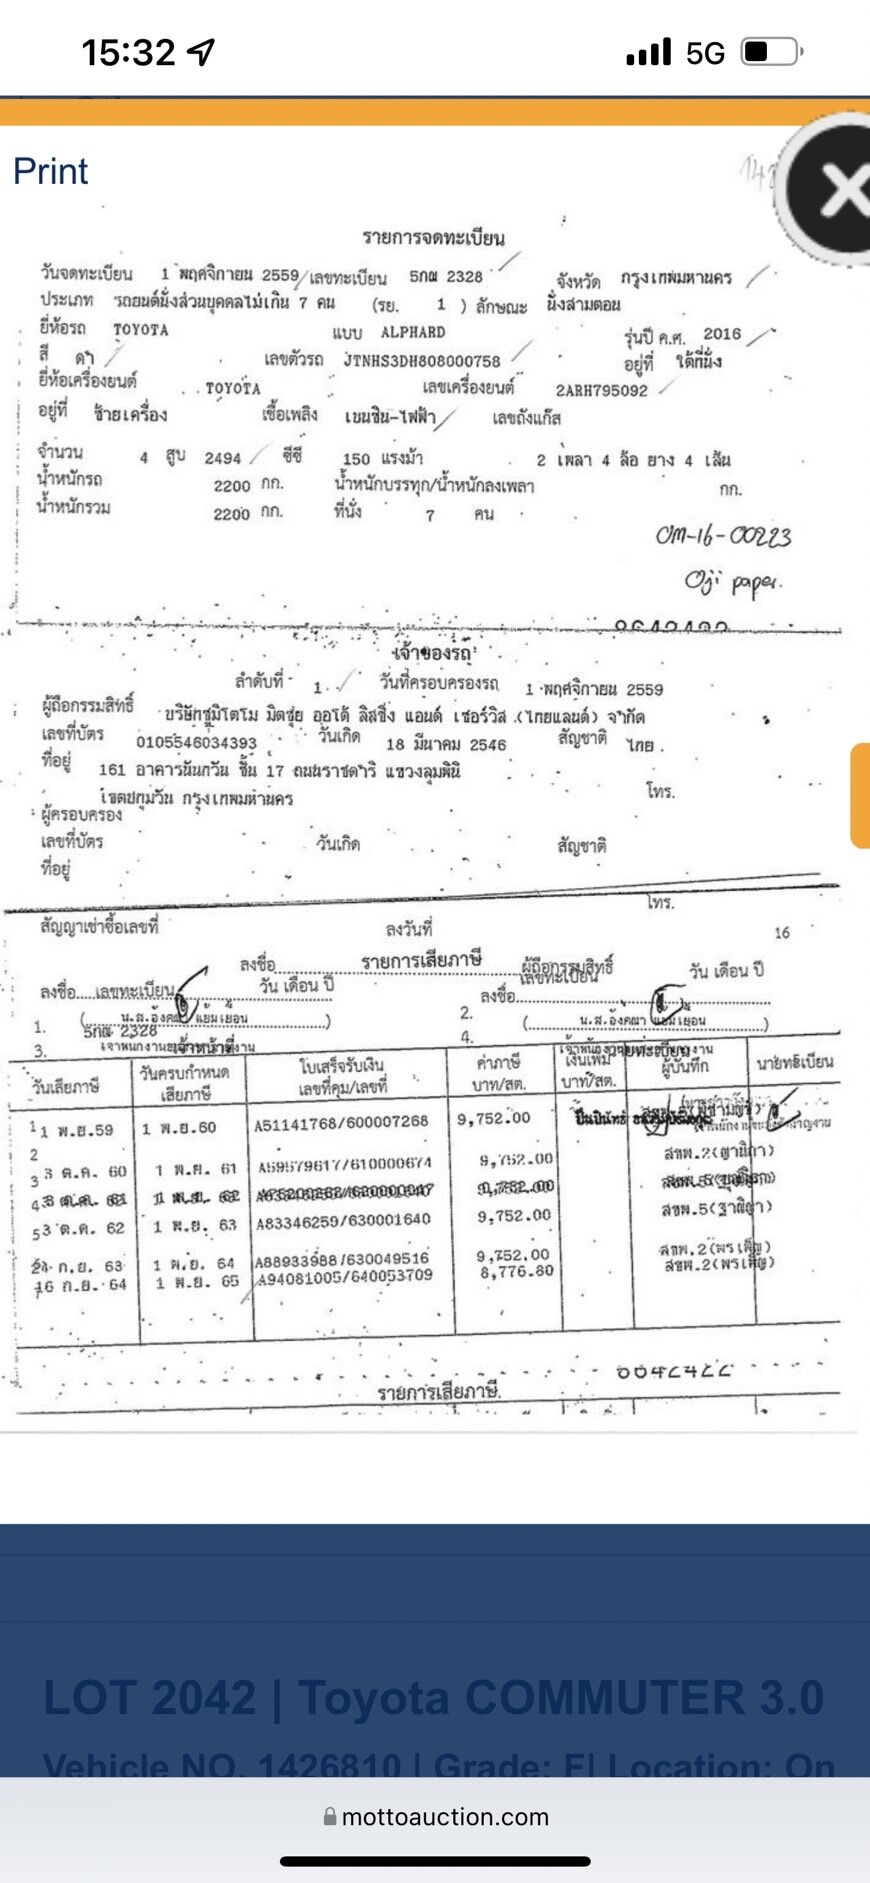 15:32 5G
Print
รายการจดทะเบียน
วันจดทะเบียน 1 พฤศจิกายน 2559 เลขทะเบียน 5กฒ 2328 จังหวัด กรุงเทพมหานคร
ประเภท รถยนต์นั่งส่วนบุคคลไม่เกิน 7 คน (รย. 1 ) ลักษณะ นั่งสามตอน
ยี่ห้อรถ TOYOTA แบบ ALPHARD รุ่นปี ค.ศ. 2016
สี ดำ เลขตัวรถ JTNHS3DH808000758 อยู่ที่ ใต้ที่นั่ง
ยี่ห้อเครื่องยนต์ TOYOTA เลขเครื่องยนต์ 2ARH795092
อยู่ที่ ซ้ายเครื่อง เชื้อเพลิง เบนซิน-ไฟฟ้า เลขถังแก๊ส
จำนวน 4 สูบ 2494 ซีซี 150 แรงม้า 2 เพลา 4 ล้อ ยาง 4 เส้น
น้ำหนักรถ 2200 กก. น้ำหนักบรรทุก/น้ำหนักลงเพลา กก.
น้ำหนักรวม 2200 กก. ที่นั่ง 7 คน
OM-16-00223
Oji paper.
เจ้าของรถ
ลำดับที่ 1. วันที่ครอบครองรถ 1 พฤศจิกายน 2559
ผู้ถือกรรมสิทธิ์ บริษัทซูมิโตโม มิตซุย ออโต้ ลิสซิ่ง แอนด์ เซอร์วิส (ไทยแลนด์) จำกัด
เลขที่บัตร 0105546034393 วันเกิด 18 มีนาคม 2546 สัญชาติ ไทย
ที่อยู่ 161 อาคารนันทวัน ชั้น 17 ถนนราชดำริ แขวงลุมพินี
เขตปทุมวัน กรุงเทพมหานคร โทร.
ผู้ครอบครอง
เลขที่บัตร วันเกิด สัญชาติ
ที่อยู่
โทร.
สัญญาเช่าซื้อเลขที่ ลงวันที่ 16
ลงชื่อ รายการเสียภาษี ผู้ถือกรรมสิทธิ์
ลงชื่อ เลขทะเบียน วัน เดือน ปี ลงชื่อ เลขทะเบียน วัน เดือน ปี
1. 5กฒ 2328 (น.ส.อังคณา แย้มเยื้อน) 2. (น.ส.อังคณา แย้มเยื้อน)
3. 4.
วันเสียภาษี วันครบกำหนดเสียภาษี ใบเสร็จรับเงิน เลขที่คุม/เลขที่ ค่าภาษี บาท/สต. เงินเพิ่ม บาท/สต. ผู้บันทึก นายทะเบียน
1 1 พ.ย.59 1 พ.ย.60 A51141768/600007268 9,752.00
2
3 3 ต.ค. 60 1 พ.ย. 61 A59579617/610000674 9,752.00
4 1 พ.ย. 62 9,752.00
5 3 ต.ค. 62 1 พ.ย. 63 A83346259/630001640 9,752.00 สขพ.5
ก.ย. 63 1 พ.ย. 64 A88933988/630049516 9,752.00 สขพ.2(พรเพ็ญ)
16 ก.ย. 64 1 พ.ย. 65 A94081005/640053709 8,776.80 สขพ.2(พรเพ็ญ)
รายการเสียภาษี
LOT 2042 | Toyota COMMUTER 3.0
Vehicle NO. 1426810 | Grade: F| Location: On
mottoauction.com